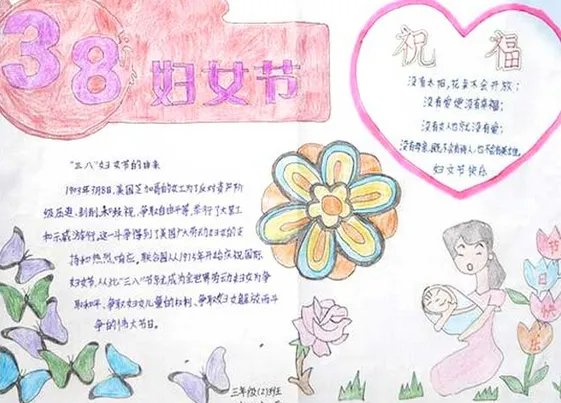 38
妇女节
祝福
没有太阳,花朵不会开放;
没有爱便没有幸福;
没有女人也就没有爱;
没有母亲,既不会有诗人,也不会有英雄。
妇女节快乐
"三八"妇女节的由来
1909年3月8日,美国芝加哥的女工为了反对资产阶
级压迫、剥削和歧视,争取自由平等,举行了大罢工
和示威游行,这一斗争得到了美国广大劳动妇女的支
持和热烈响应。联合国从1975年开始庆祝国际
妇女节,从此"三八"节就成为全世界劳动妇女为争
取和平、争取妇女儿童的权利、争取妇女解放而斗
争的伟大节日。
节日快乐
三年级(2)班